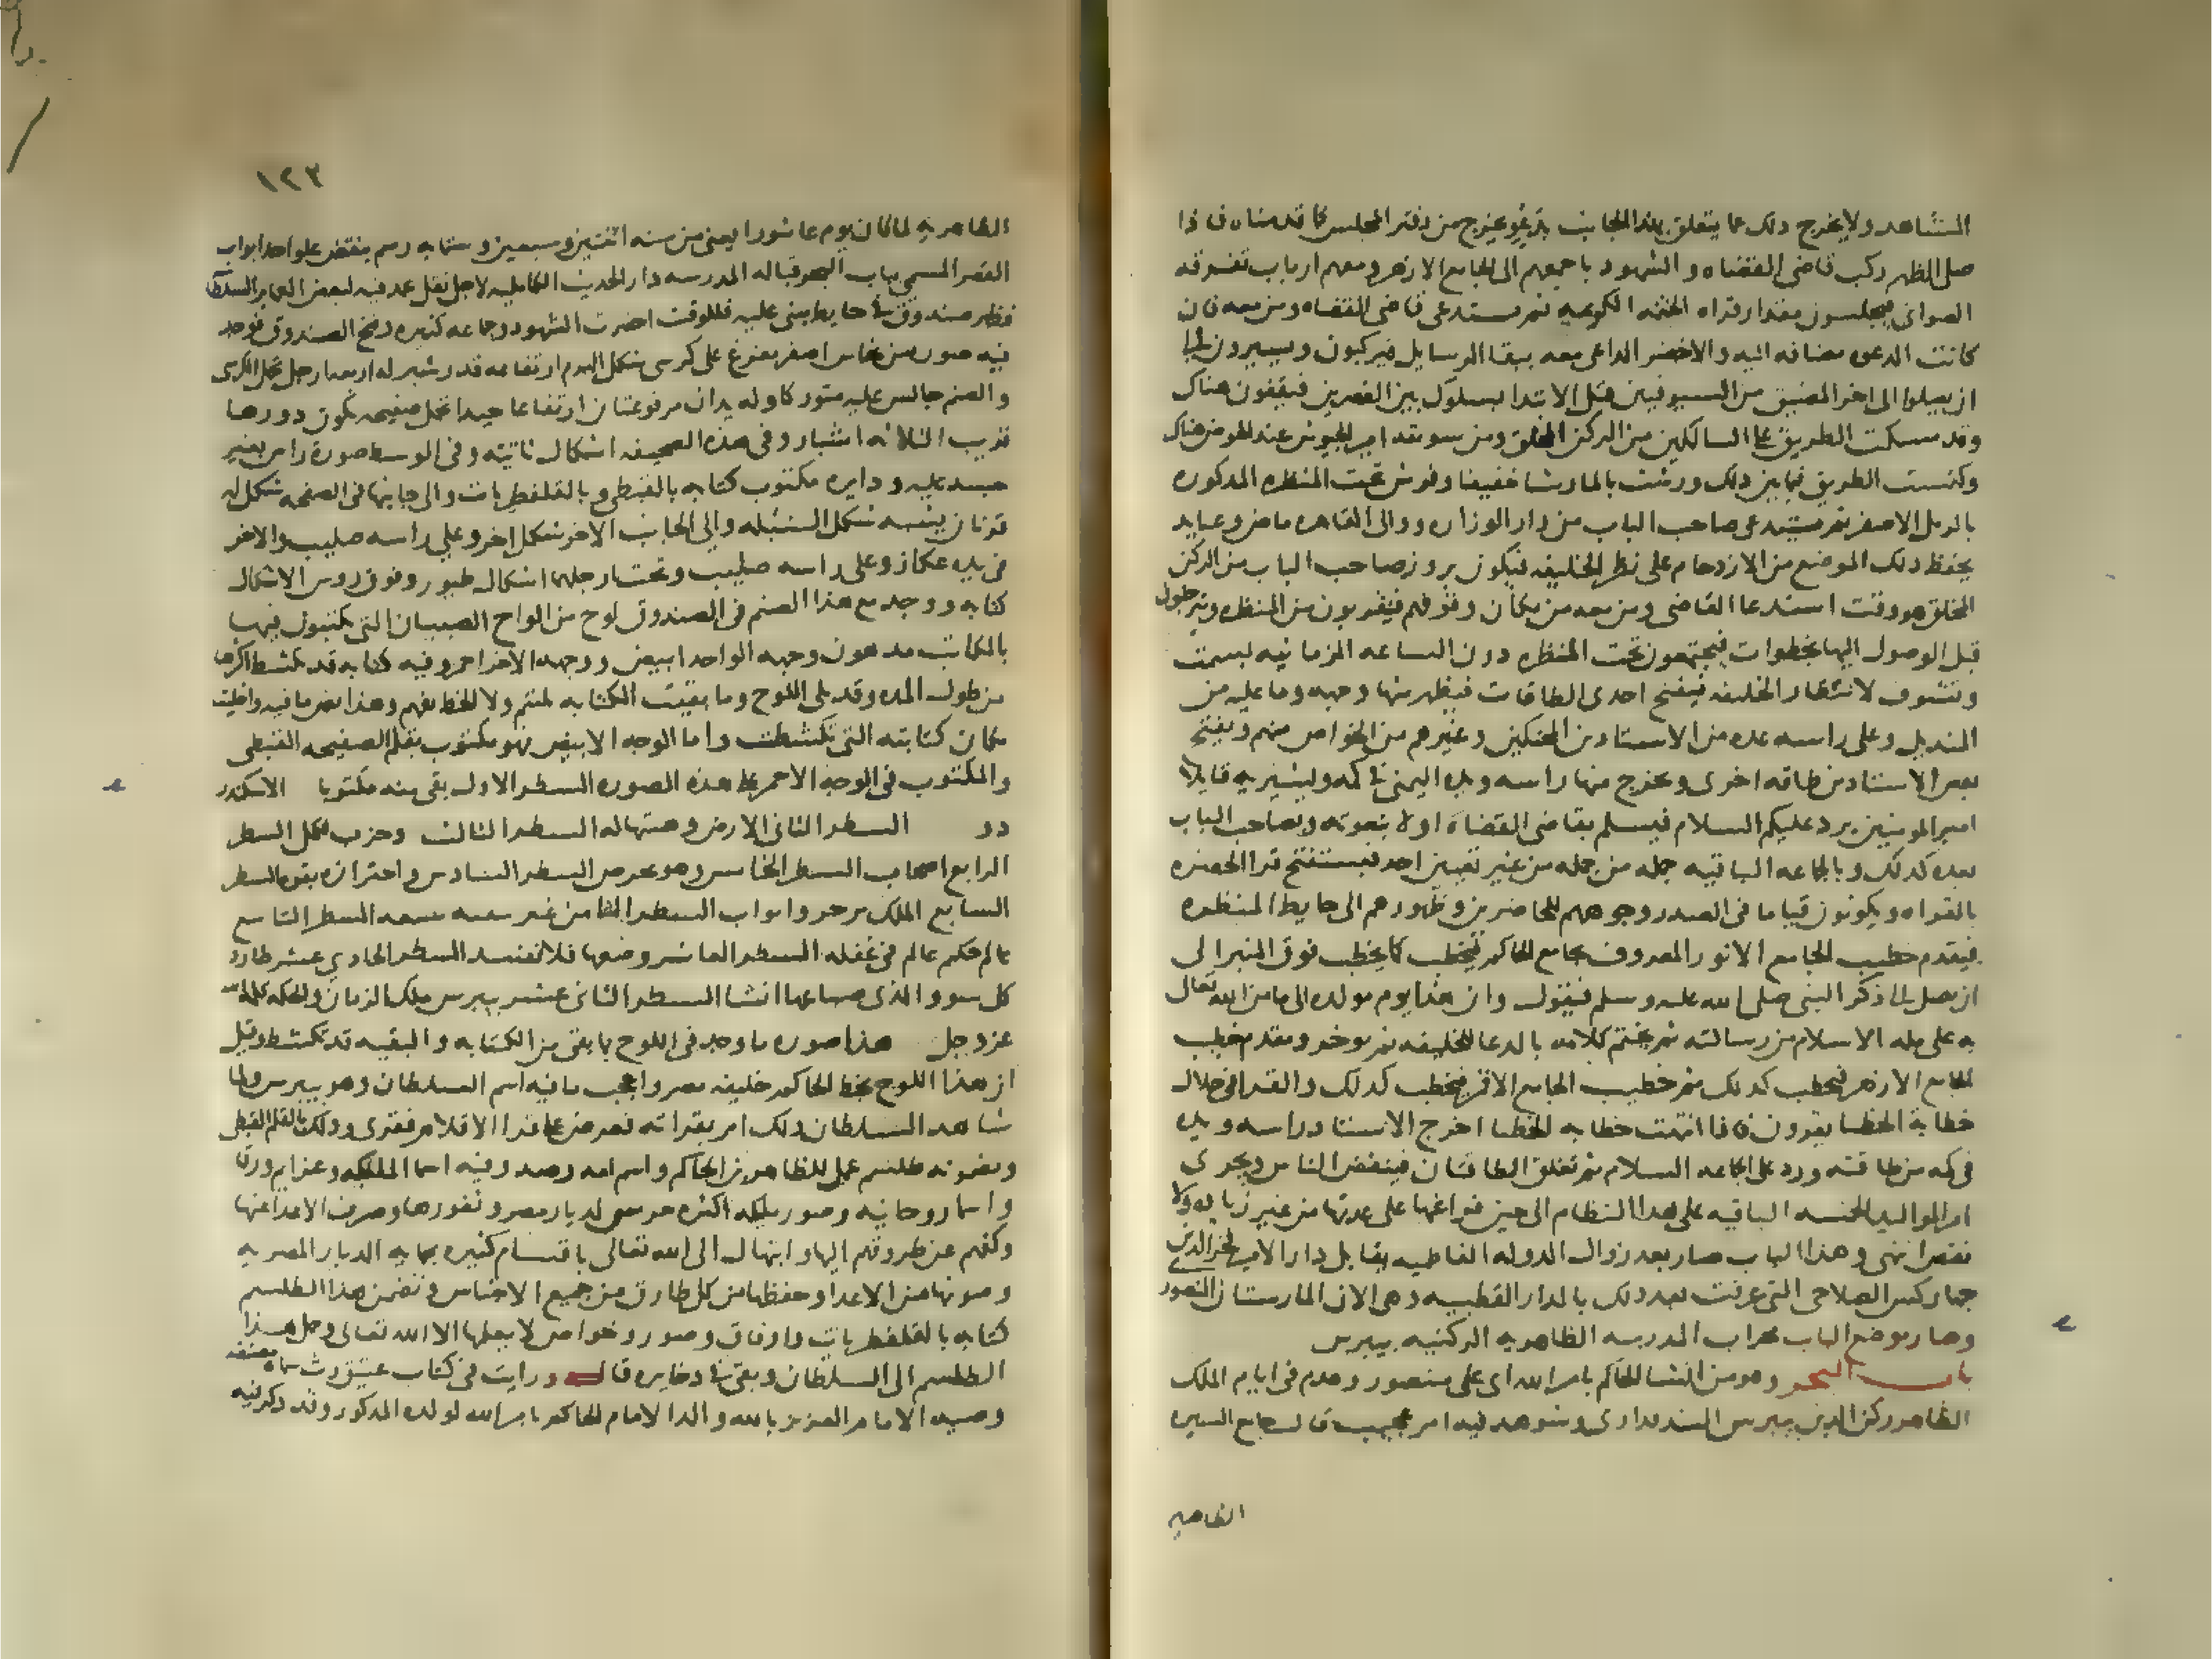 المشاهد ولا يخرج ذلك مما يتعلق بهذا الجانب بل يخرج من دفتر المجلس كما قدمناه فاذا
صلى الظهر ركب قاضى القضاه والشهود باجمعهم الى الجامع الازهر ومعهم ارباب تفرقه
الصوانى فيجلسون مقدار قراه الختمه الكريمه ثم يستدعى قاضى القضاه ومن معه فان
كانت الدعوه مضافه اليه والا حضر الداعى معه بنقبا الرسايل فيركبون ويسيرون الى
ان يصلوا الى اخر المضيق من السيوفيين قبل الابتدا بسلوك بين القصرين فيقفون هناك
وقد سكت الطريق على السالكين من الركن المخلق ومن سويقه امير الجيوش عند الحوض هناك
وكنست الطريق فيما بين ذلك ورشت بالما رشا خفيفا وفرش تحت المنظره المدكوره
بالرمل الاصفر ثم يستدعى صاحب الباب من دار الوزاره ووالى القاهره ماض وعايد
يحفظ دلك الموضع من الازدحام على نظر الخليفه فيكون بروز صاحب الباب من الركن
المخلق هو وقت استدعا القاضى ومن معه من مكان وقوفهم فيقربون من المنظره ويترجلون
قبل الوصول اليها بخطوات فيجتمعون تحت المنظره دون الساعه الزمانيه بسمت
وتشوف لانتظار الخليفه فيفتح احدى الطاقات فيظهر منها وجهه وما عليه من
المنديل وعلى راسه عده من الاستادين المحنكين وغيرهم من الخواص منهم ويفتح
بعض الاستادين طاقه اخرى ويخرج منها راسه ويده اليمنى فى كمه ويشير به قايلا
امير المومنين يرد عليكم السلام فيسلم بقاضى القضاه اولا بنعوته وبصاحب الباب
بعده كدلك وبالجماعه الباقيه جمله من جمله من غير تعيين احد فيستفتح قرا الحضره
بالقراه ويكونون قياما فى الصدر وجوههم للحاضرين وظهورهم الى حايط المنظره
فيقدم خطيب الجامع الانور المعروف بجامع الحاكم فيخطب كما يخطب فوق المنبر الى
ان يصل الى ذكر النبى صلى الله عليه وسلم فيقول وان هذا يوم مولده الى ما من الله تعالى
به على مله الاسلام من رسالته ثم يختم كلامه بالدعا للخليفه ثم يوخر ويقدم خطيب
الجامع الازهر فيخطب كدلك ثم خطيب الجامع الاقمر فيخطب كدلك والقرا فى خلال
خطابة الخطبا يقرون فاذا انتهت خطابه الخطبا اخرج الاستاد راسه ويده
فى كمه من طاقته ورد على الجماعه السلام ثم تغلق الطاقتان فينفض الناس ويجرى
امر المواليد الخمسه الباقيه على هدا النظام الى حين فراغها على عدتها من غير زياده ولا
نقص انتهى وهذا الباب صار بعد زوال الدوله الفاطميه يقابل دار الامير فخر الدين
جهاركس الصلاحى التى عرفت بعد دلك بالدار القطبيه وهى الان المارستان المنصورى
وصار موضع الباب محراب المدرسه الظاهريه الركنيه بيبرس
باب البحر وهو من انشا الحاكم بامر الله ابى على منصور وهدم فى ايام الملك
الظاهر ركن الدين بيبرس البندقدارى وشوهد فيه امر عجيب قال جامع السيره
الظاهريه
١٢٣
الظاهريه لما كان يوم عاشورا يعنى من سنه اثنتين وسبعين وستمايه رسم بنقض علو احد ابواب
القصر المسمى بباب البحر قباله المدرسه دار الحديث الكامليه لاجل نقل عمد فيه لبعض العماير السلطانيه
فظهر صندوق فى حايط مبنى عليه فللوقت احضرت الشهود وجماعه كثيره وفتح الصندوق فوجد
فيه صوره من نحاس اصفر مفرغ على كرسى شكل الهرم ارتفاعه قدر شبر له اربعه ارجل تحمل الكرسى
والصنم جالس عليه متوركا وله يدان مرفوعتان ارتفاعا جيدا تحمل صفيحه تكون دورها
قريب الثلاثه اشبار وفى هذه الصحيفه اشكال ثابته وفى الوسط صورة راس بغير
جسد عليه ودايره مكتوب كتابه بالقبطى وبالقلفطريات والى جانبها فى الصفحه شكل له
قرنان يشبه شكل السنبله والى الجانب الاخر شكل اخر وعلى راسه صليب والاخر
فى يده عكاز وعلى راسه صليب وتحت ارجلهم اشكال طيور وفوق روس الاشكال
كتابه ووجد مع هذا الصنم فى الصندوق لوح من الواح الصبيان التى يكتبون فيها
بالمكاتب مدهون وجهه الواحد ابيض ووجهه الاخر احمر وفيه كتابه قد تكشط اكثرها
من طول المده وقد بلى اللوح وما بقيت الكتابه تلتئم ولا الخط يفهم وهذا نص ما فيه واخليت
مكان كتابته التى تكشطت واما الوجه الابيض فهو مكتوب بقلم الصفيحه القبطى
والمكتوب فى الوجه الاحمر على هذه الصوره السطر الاول بقى منه مكتوبا الاسكندر
السطر الثانى الارض وهبتها له السطر الثالث وجرب لكل السطر
الرابع اصحاب السطر الخامس وهو يحرس السطر السادس واحترازه بقوه السطر
السابع الملك مرجو وابواب السطر الثامن غير سبعه السطر التاسع
عالم حكيم عالم فى عقله السطر العاشر وصفها فلا تفسد السطر الحادى عشر طارد
كل سوو والذى صاغها انشا السطر الثانى عشر بيبرس ملك الزمان والحكمه كلمه الله
عز وجل هذا صوره ما وجد فى اللوح مما بقى من الكتابه والبقيه قد تكشط وقيل
ان هذا اللوح بخط الحاكم خليفه مصر واعجب ما فيه اسم السلطان وهو بيبرس ولما
شاهد السلطان دلك امر بقراته فعرض على قرا الاقلام فقرى ودلك بالقلم القبطى
ومضمونه طلسم عمل للظاهر بن الحاكم واسم امه رصد وفيه اسما الملايكه وعزايم ورقا
واسما روحانيه وصور ملايكه اكثره حرس لديار مصر وثغورها وصرف الاعدا عنها
وكفهم عن طروقهم اليها وابتهال الى الله تعالى باقسام كثيره لحمايه الديار المصريه
وصونها من الاعدا وحفظها من كل طارق من جميع الاجناس وتضمن هذا الطلسم
كتابه بالقلفطريات واوفاق وصور وخواص لا يعلمها الا الله تعالى وحمل هذا
الطلسم الى السلطان وبقى فى دخايره قال ورايت فى كتاب عتيق رث سماه مصنفه
وصيه الامام العزيز بالله والد الامام الحاكم بامر الله لولده المدكور وقد ذكر فيه